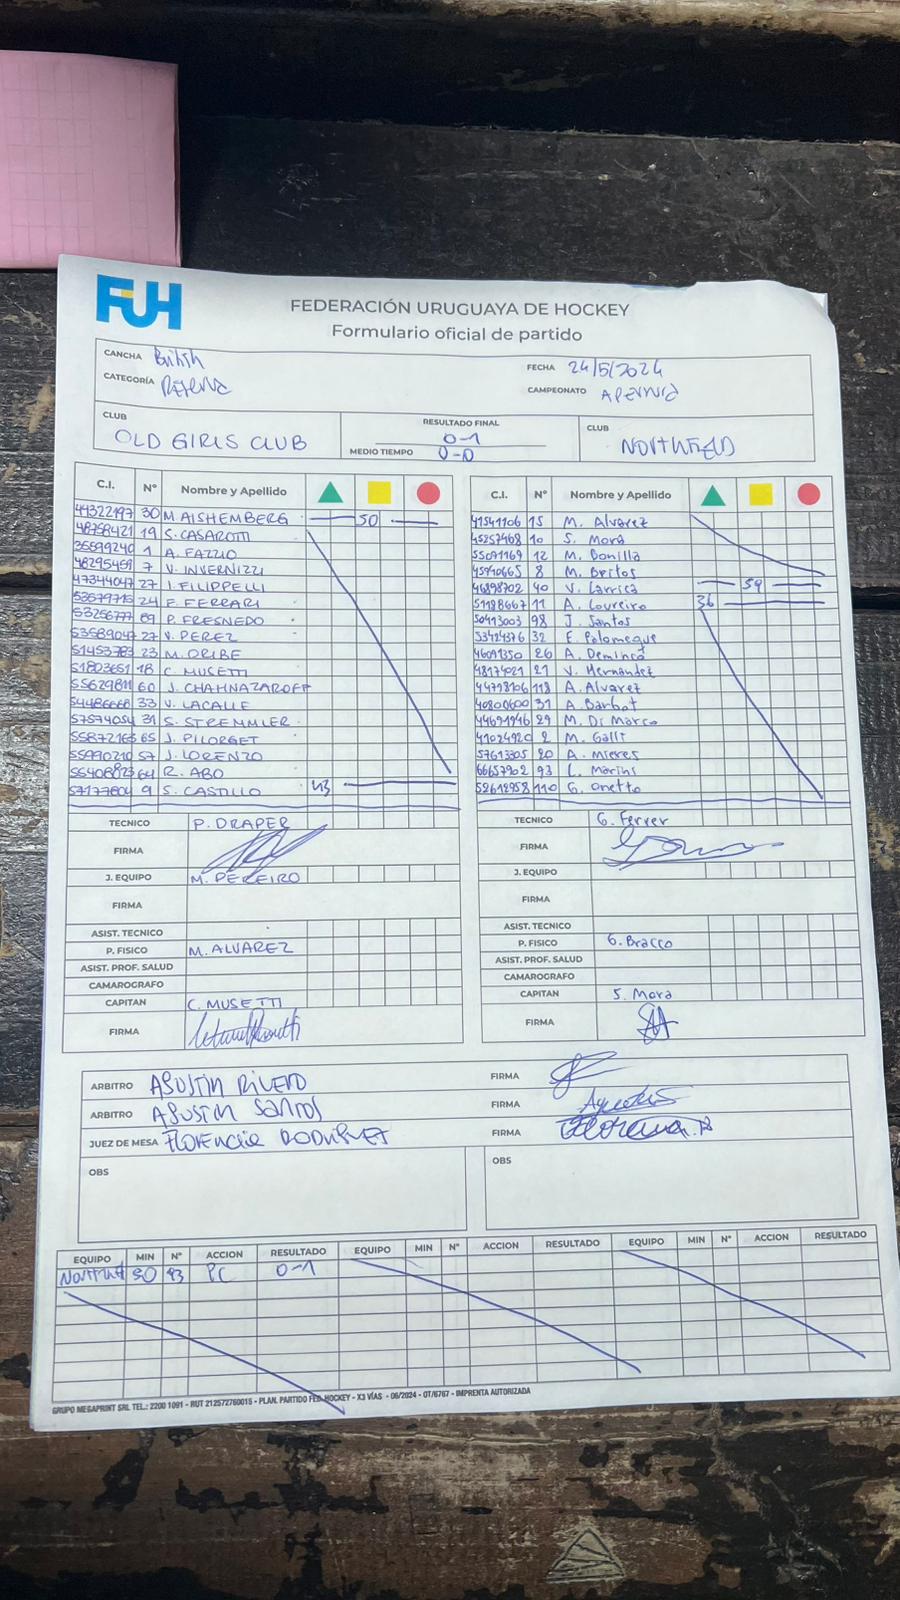 FUH
FEDERACIÓN URUGUAYA DE HOCKEY
Formulario oficial de partido
CANCHA British
FECHA 24/5/2024
CATEGORÍA Reserva
CAMPEONATO APERTURA
CLUB
OLD GIRLS CLUB
RESULTADO FINAL
0-1
MEDIO TIEMPO 0-0
CLUB
NORTHFIELD
C.I. Nº Nombre y Apellido
44322197 30 M. AISHEMBERG 50
48758421 19 S. CASAROTTI
35599240 1 A. FAZZIO
48295459 7 V. INVERNIZZI
47344047 27 J. FILIPPELLI
53579715 24 F. FERRARI
53256777 69 P. FRESNEDO
53589047 22 V. PEREZ
51453783 23 M. ORIBE
51803651 18 C. MUSETTI
55629811 60 J. CHAHNAZAROFF
33 V. LACALLE
57574054 31 S. STREMMLER
55872165 65 J. PILORGET
55990210 57 J. LORENZO
55408823 64 R. ABO
57177804 9 S. CASTILLO 43
TECNICO P. DRAPER
FIRMA
J. EQUIPO M. PEREIRO
FIRMA
ASIST. TECNICO
P. FISICO M. ALVAREZ
ASIST. PROF. SALUD
CAMAROGRAFO
CAPITAN C. MUSETTI
FIRMA
C.I. Nº Nombre y Apellido
41541106 15 M. Alvarez
45257468 10 S. Mora
55091169 12 M. Bonilla
45940665 8 M. Britos
46898702 40 V. Larrica 59
51188667 11 A. Loureiro 36
50413003 98 J. Santos
53424376 32 E. Polomeque
46091350 26 A. Deminca
48174021 21 V. Hernandez
44718106 118 A. Alvarez
40800600 31 A. Barbot
44691946 29 M. Di Marco
41024920 2 M. Galli
57613305 20 A. Mieres
66657902 93 L. Marins
52612958 110 G. Onetto
TECNICO G. Ferrer
FIRMA
J. EQUIPO
FIRMA
ASIST. TECNICO
P. FISICO G. Bracco
ASIST. PROF. SALUD
CAMAROGRAFO
CAPITAN S. Mora
FIRMA
ARBITRO AGUSTIN RIVERO FIRMA
ARBITRO AGUSTIN SANTOS FIRMA
JUEZ DE MESA FLORENCIA RODRIGUEZ FIRMA
OBS
OBS
EQUIPO MIN Nº ACCION RESULTADO EQUIPO MIN Nº ACCION RESULTADO EQUIPO MIN Nº ACCION RESULTADO
50 93 PC 0-1
GRUPO MEGAPRINT SRL TEL.: 2200 1091 - RUT 212572760015 - PLAN. PARTIDO FED. HOCKEY - X3 VÍAS - 06/2024 - OT/6767 - IMPRENTA AUTORIZADA